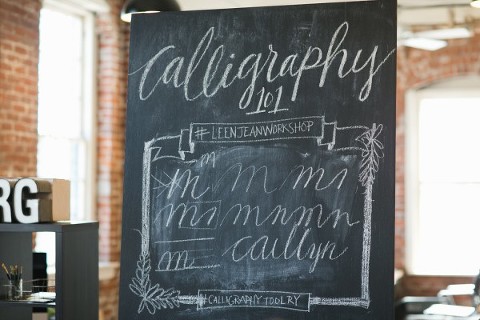 Calligraphy
101
#LEENJEANWORKSHOP
m
m m m
m mnmn
m caitlyn
#CALLIGRAPHYTOOLRY
RG